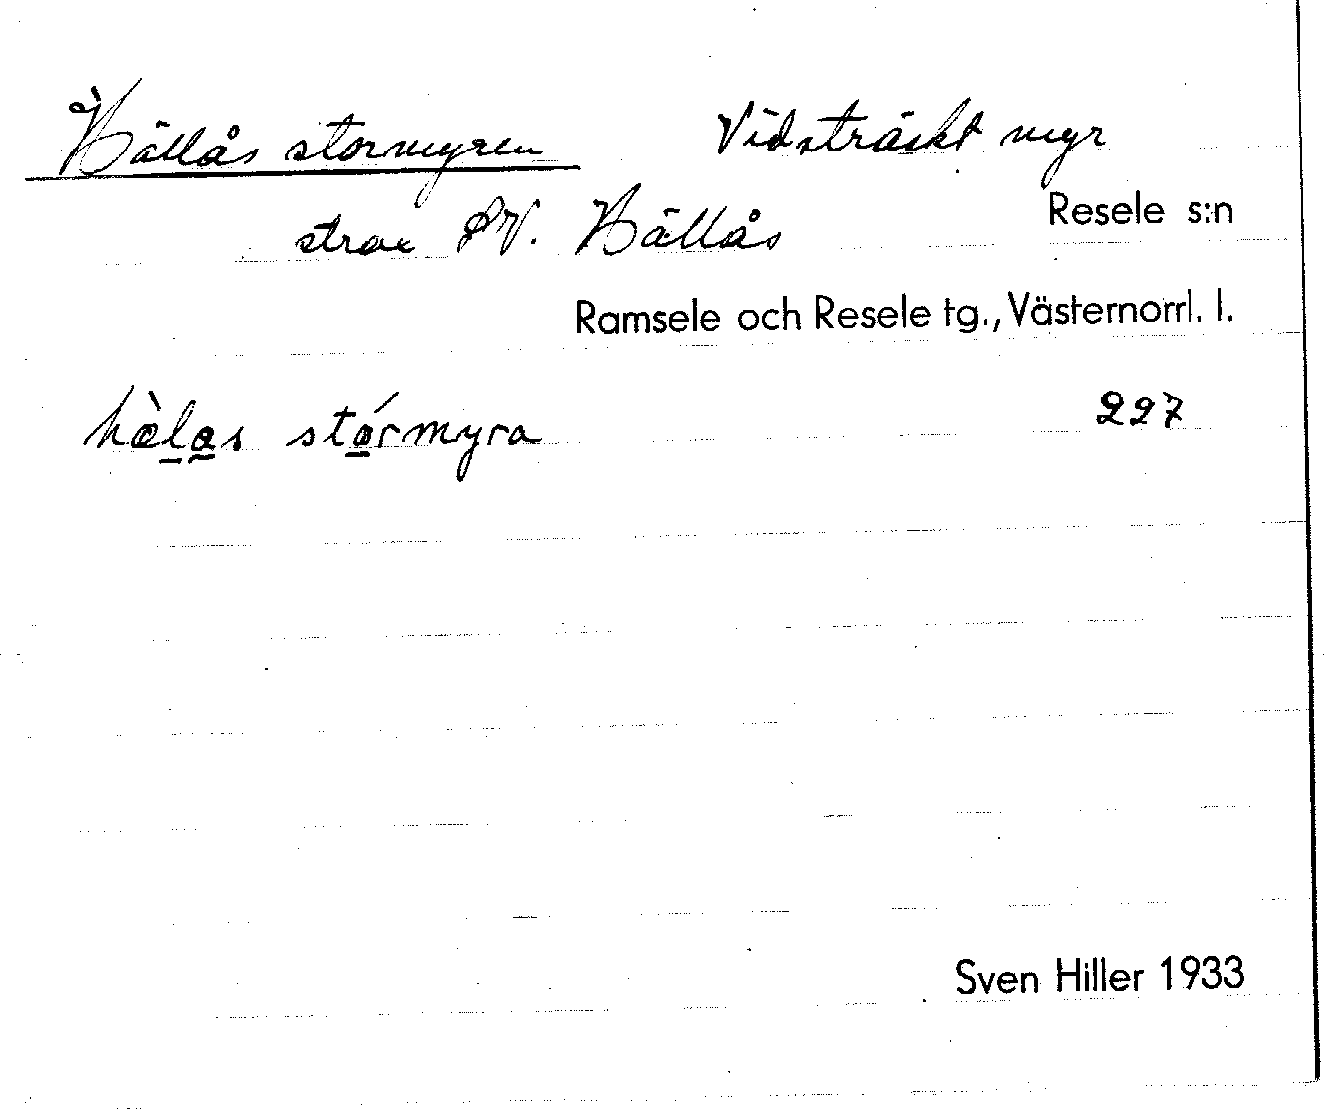 Hällås stormyren Vidsträckt myr
Resele s:n
strax SV. Hällås
Ramsele och Resele tg., Västernorrl. l.
hæ̀las stórmyra 227
Sven Hiller 1933